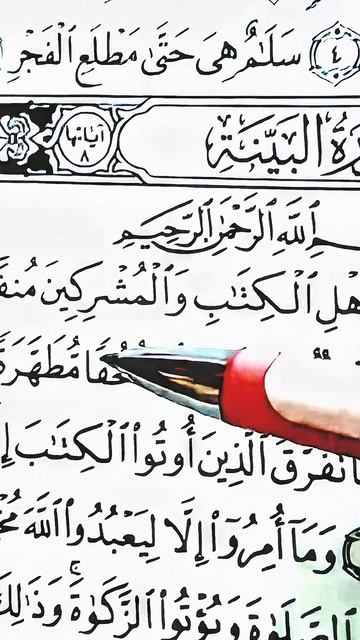 ٤ سَلَٰمٌ هِىَ حَتَّىٰ مَطْلَعِ ٱلْفَجْرِ
ٱلْبَيِّنَة
آياتها ٨
ٱللَّهِ ٱلرَّحْمَٰنِ ٱلرَّحِيمِ
ٱلْكِتَٰبِ وَٱلْمُشْرِكِينَ
مُّطَهَّرَةً
ٱلَّذِينَ أُوتُوا۟ ٱلْكِتَٰبَ
وَمَآ أُمِرُوٓا۟ إِلَّا لِيَعْبُدُوا۟ ٱللَّهَ
وَيُؤْتُوا۟ ٱلزَّكَوٰةَ ۚ وَذَٰلِكَ